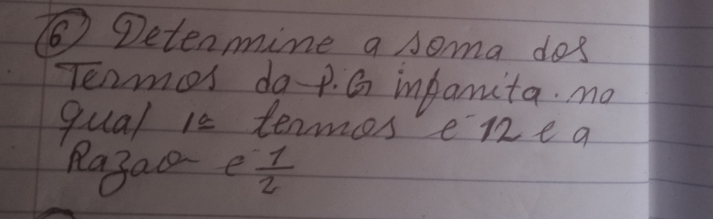 6) Determine a soma dos
Termos da P.G infanita. no
qual 1º termos e 12 e a
Razao e 1/2